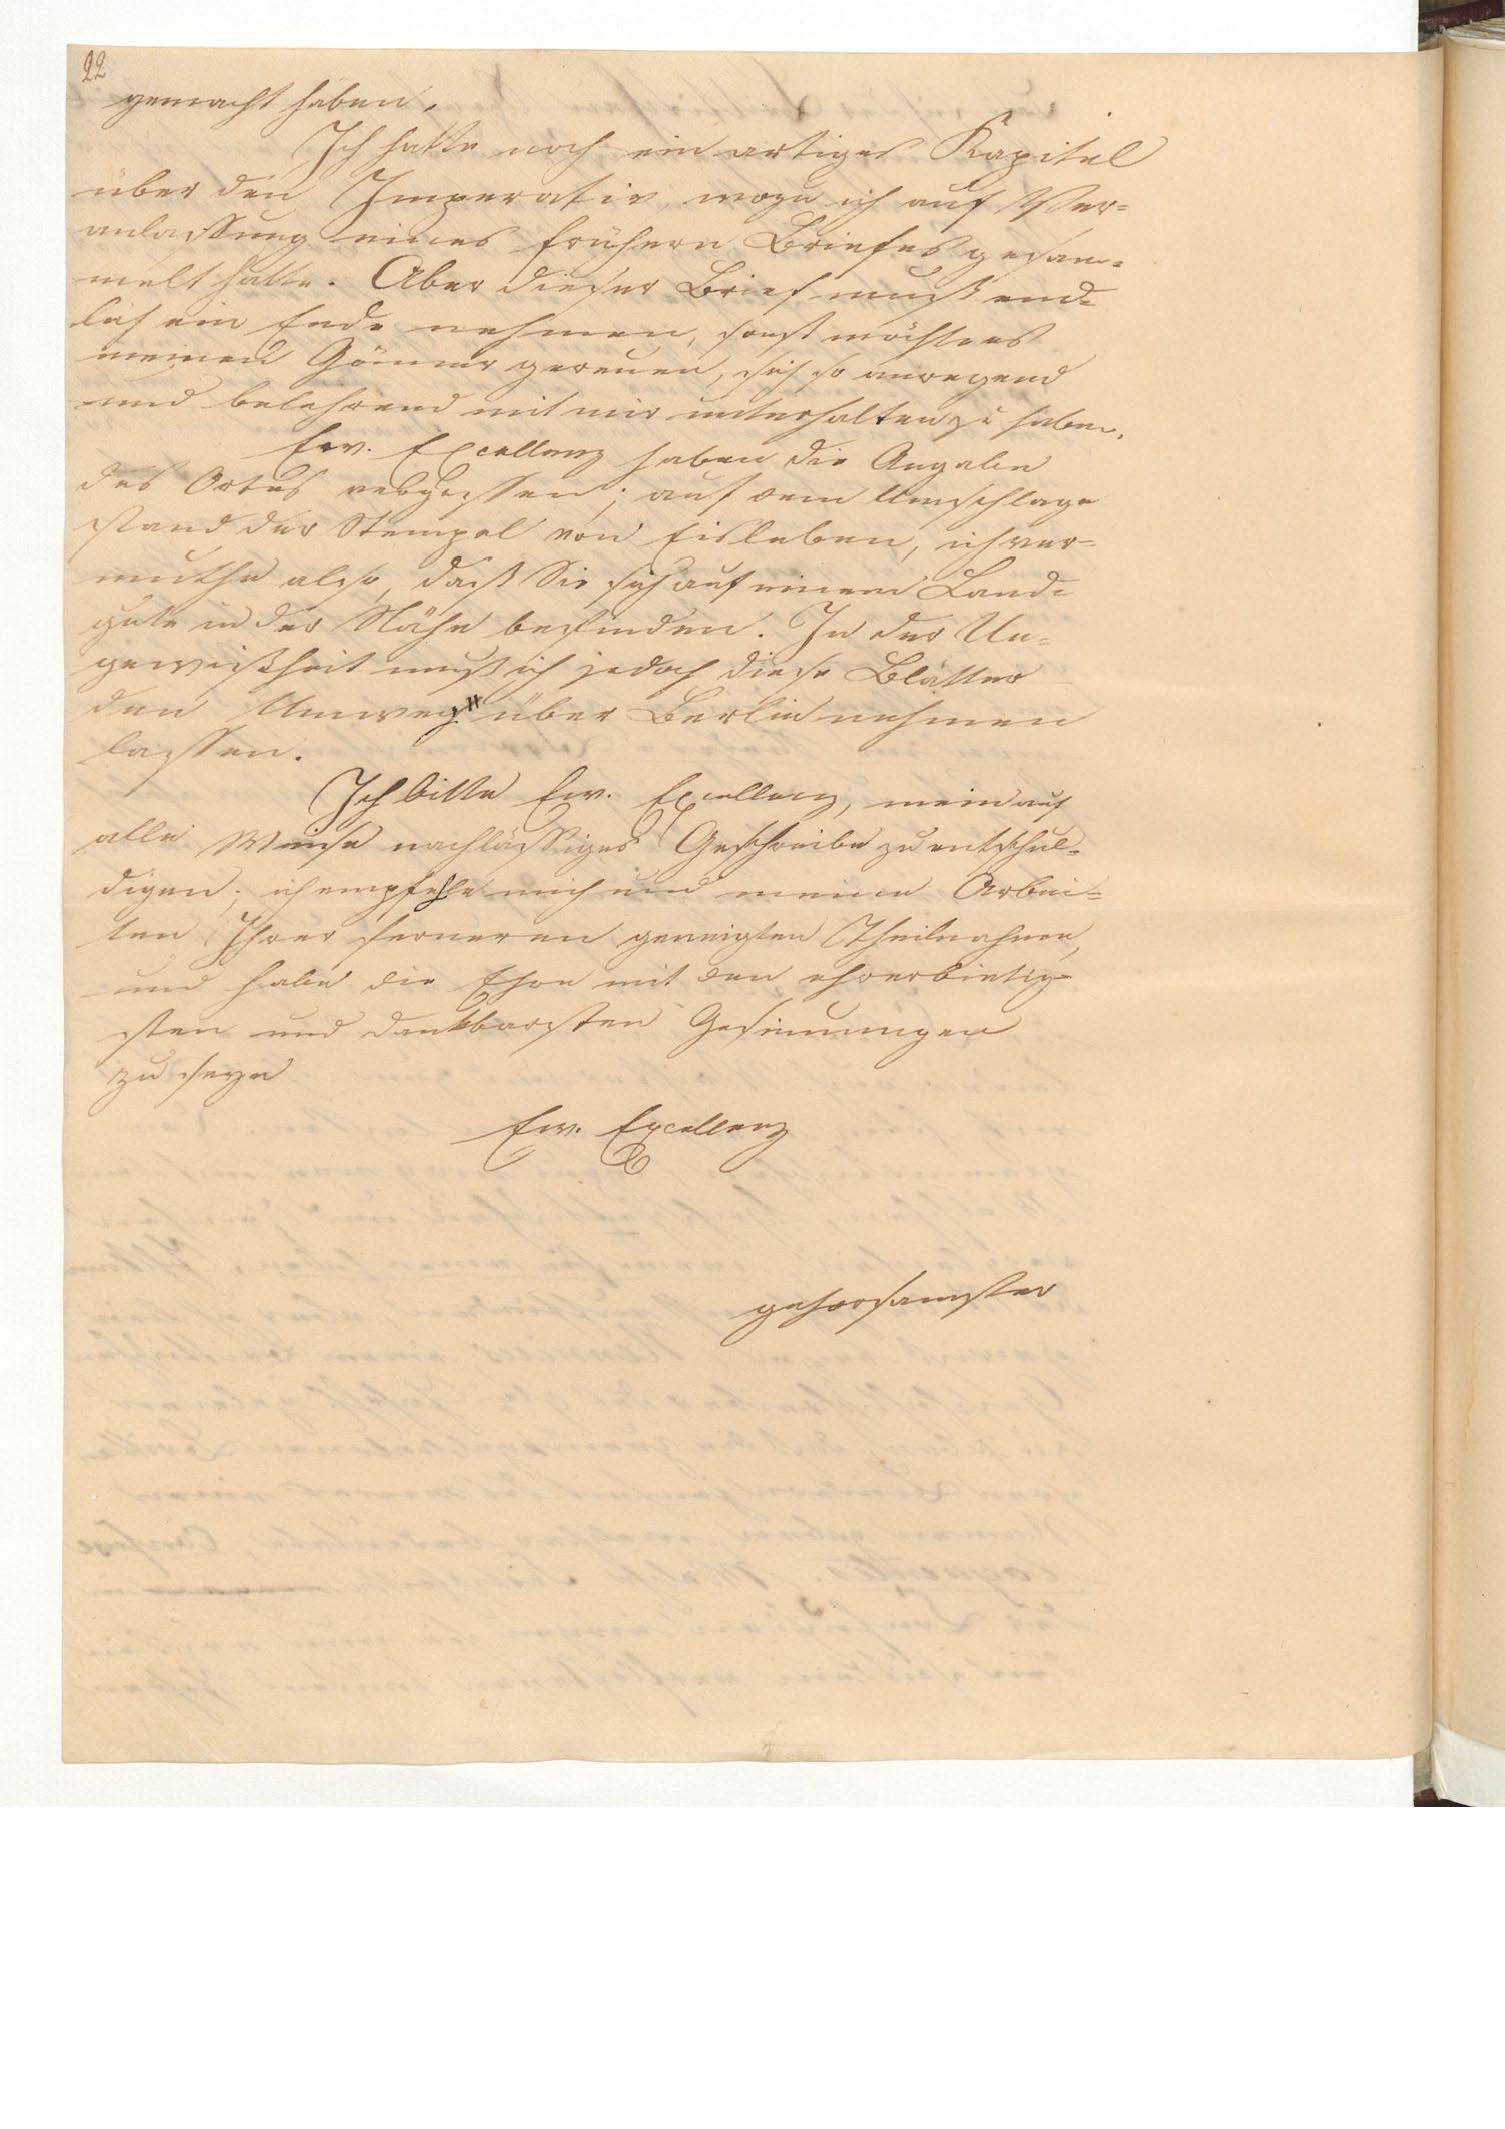 22
gemacht haben.
Ich hatte noch ein artiges Kapitel
über den Imperativ, wozu ich auf Ver=
anlassung eines frühern Briefes gesam=
melt hatte. Aber dieser Brief muß end=
lich ein Ende nehmen, sonst möchte es
meinen Gönner gereuen, sich so anregend
und belehrend mit mir unterhalten zu haben.
Ew. Excellenz haben die Angabe
des Ortes vergessen; auf dem Umschlage
stand der Stempel von Eisleben, ich ver=
muthe also, daß Sie sich auf einem Land=
gute in der Nähe befinden. In der Un=
gewißheit muß ich jedoch diese Blätter
den Umweg über Berlin nehmen
lassen.
Ich bitte Ew. Excellenz, mein auf
alle Weise nachlässiges Geschreibe zu entschul=
digen; ich empfehle mich und meine Arbei=
ten Ihrer ferneren geneigten Theilnahme,
und habe die Ehre mit den ehrerbietig=
sten und dankbarsten Gesinnungen
zu seyn
Ew. Excellenz
gehorsamster